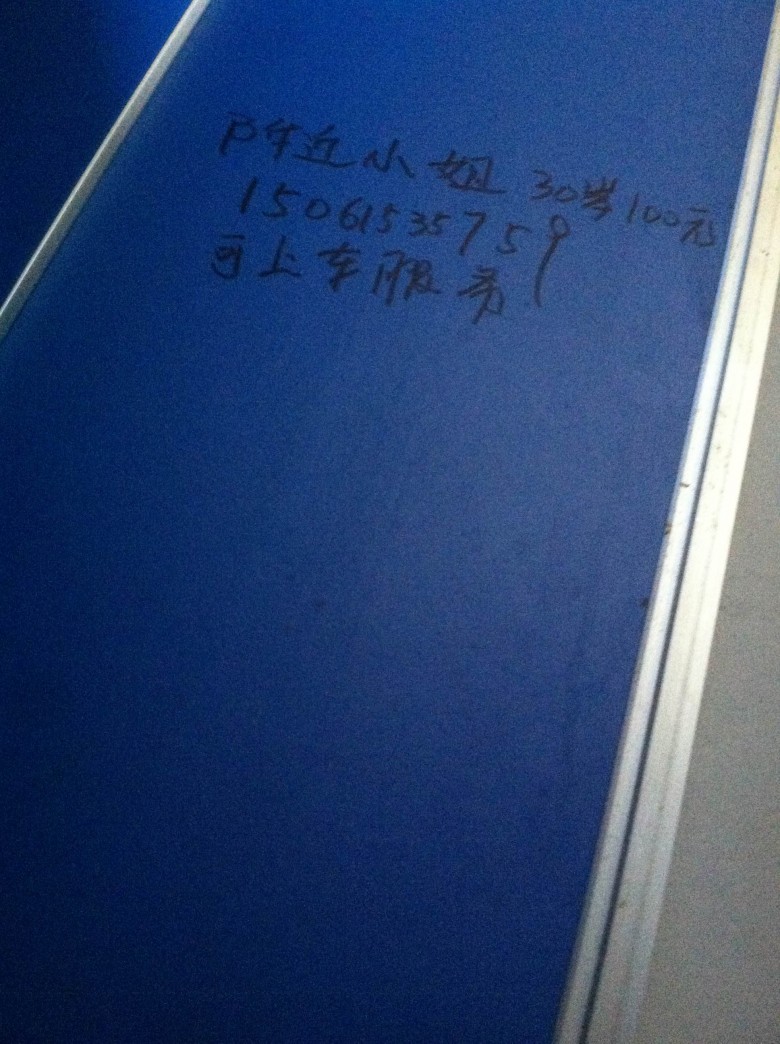 附近小姐 30岁100元
15061535759
可上车服务